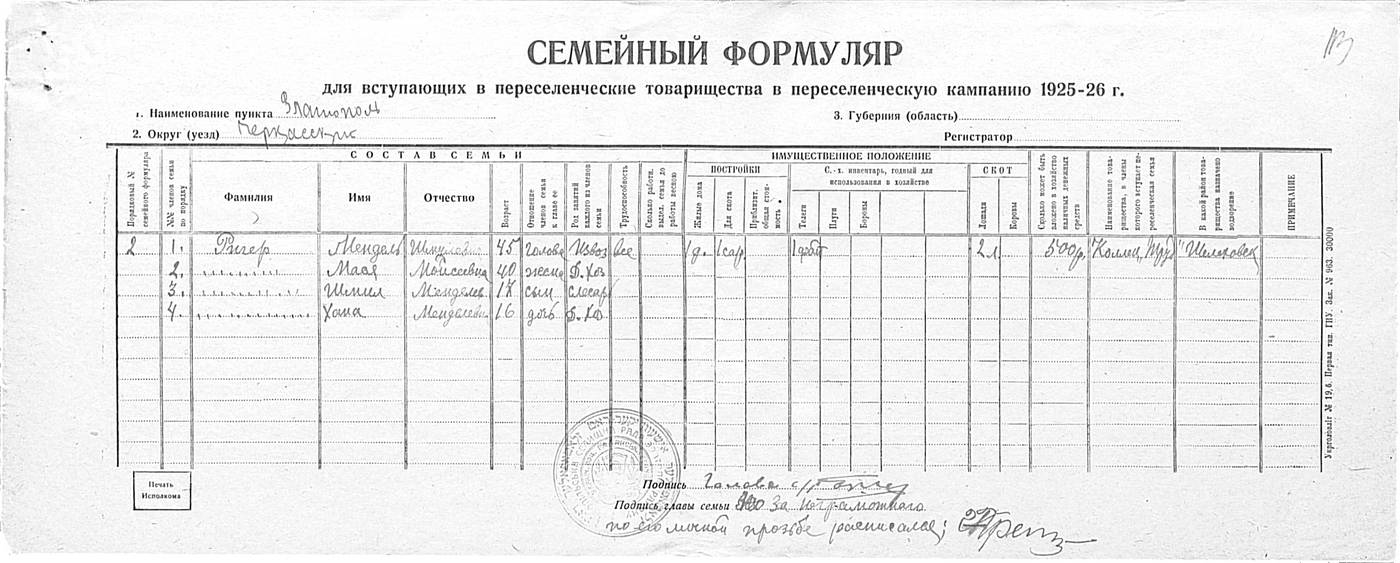 113
СЕМЕЙНЫЙ ФОРМУЛЯР
для вступающих в переселенческие товарищества в переселенческую кампанию 1925-26 г.
1. Наименование пункта Златополь
3. Губерния (область)
2. Округ (уезд) Черкасский
Регистратор
СОСТАВ СЕМЬИ
ИМУЩЕСТВЕННОЕ ПОЛОЖЕНИЕ
Порядковый № семейного формуляра
№№ членов семьи по порядку
Фамилия
Имя
Отчество
Возраст
Отношение членов семьи к главе ее
Род занятий каждого из членов семьи
Трудоспособность
Сколько работн. выдел. семья до работы весною
ПОСТРОЙКИ
Жилые дома
Для скота
Приблизит. общая стоимость
С.-х. инвентарь, годный для использования в хозяйстве
Телеги
Плуги
Бороны
СКОТ
Лошади
Коровы
Сколько может быть вложено в хозяйство наличных денежных средств
Наименование товарищества, в члены которого вступает переселенческая семья
В какой район товарищества назначено водворение
ПРИМЕЧАНИЕ
2 1. Ригер Мендель 45 Голова Извоз все 1 д. 1 сар. 2 л. 500 р. Коллец. Труд
2. Мася Мойсеевна 40 жена Д. Хоз
3. Шмил Менделев 17 сын слесар
4. Хана Менделевн 16 дочь Д. Хоз
Печать
Исполкома
Подпись Голова с/р
Подпись главы семьи За неграмотного
по его личной прозьбе росписалса;
Укрголовліт № 19, б. Первая тип. ГИУ. Зак. № 963. 30000